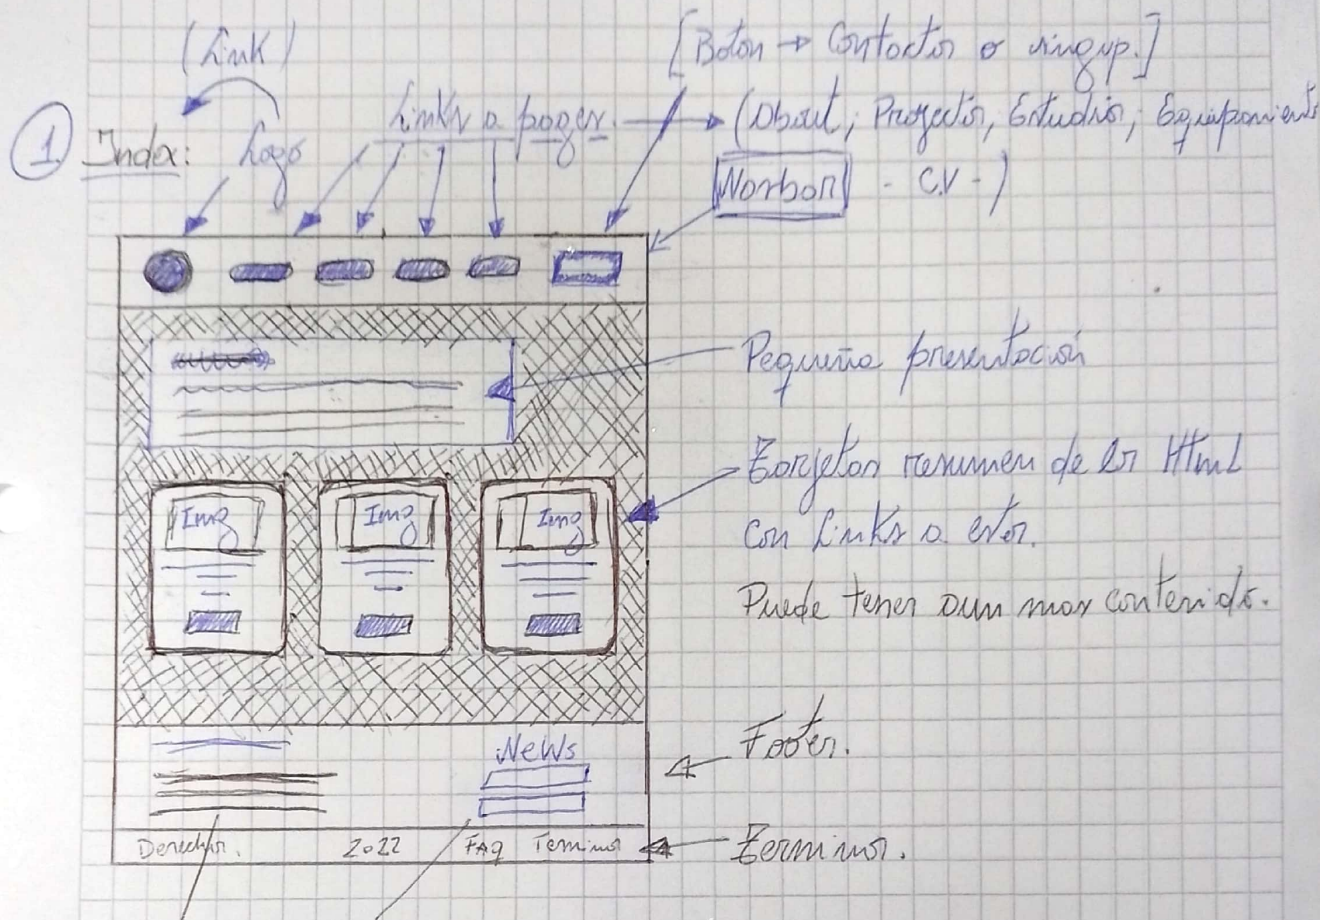 (Link)
[Boton → Contacto o singup.]
① Index: Logo
Links a pages. → (About, Projectos, Estudios, Equipamiento
Navbar - C.V -)
Pequeña presentación
Tarjetas resumen de los Html
con Links a estos.
Puede tener aun mas contenido.
Img
Img
Img
NeWs
Footer.
Derechos. 2022 FAQ Terminos
Terminos.